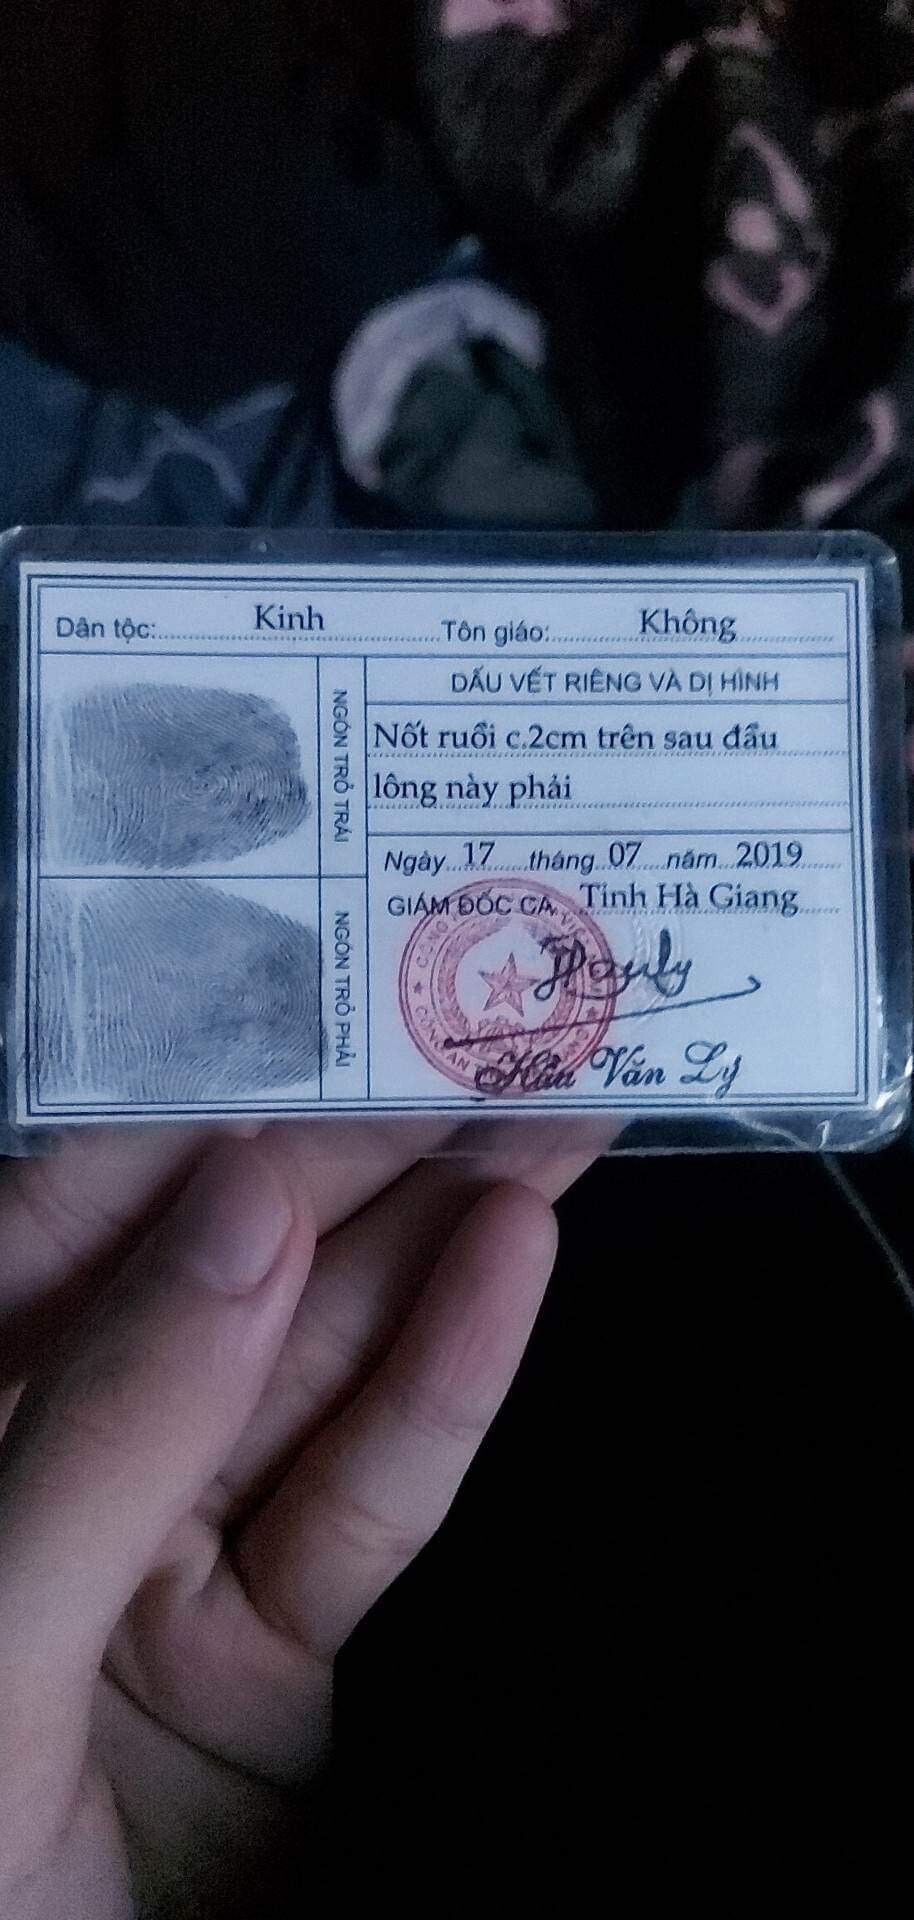 Dân tộc: Kinh Tôn giáo: Không
DẤU VẾT RIÊNG VÀ DỊ HÌNH
NGÓN TRỎ TRÁI
Nốt ruồi c.2cm trên sau đầu
lông này phải
Ngày 17 tháng 07 năm 2019
GIÁM ĐỐC CA Tỉnh Hà Giang
NGÓN TRỎ PHẢI
Hầu Văn Lý